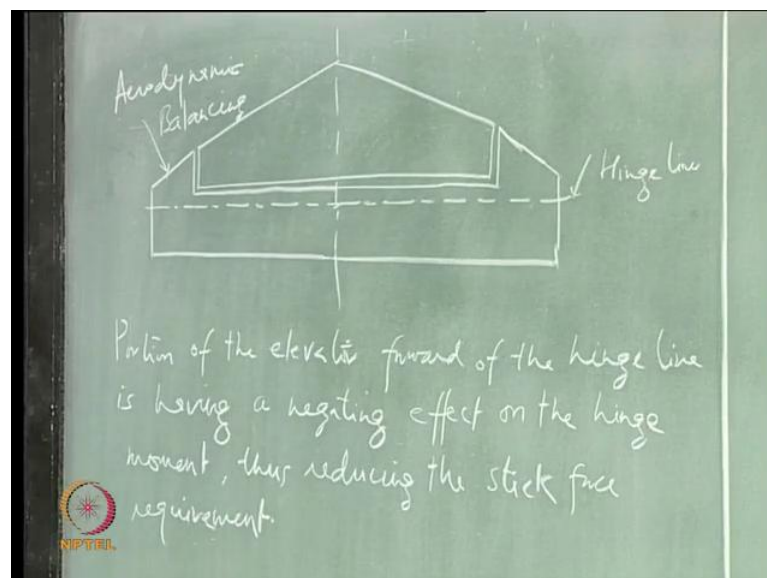 Aerodynamic
Balancing
Hinge line
Portion of the elevator forward of the hinge line
is having a negating effect on the hinge
moment, thus reducing the stick force
requirement.
NPTEL